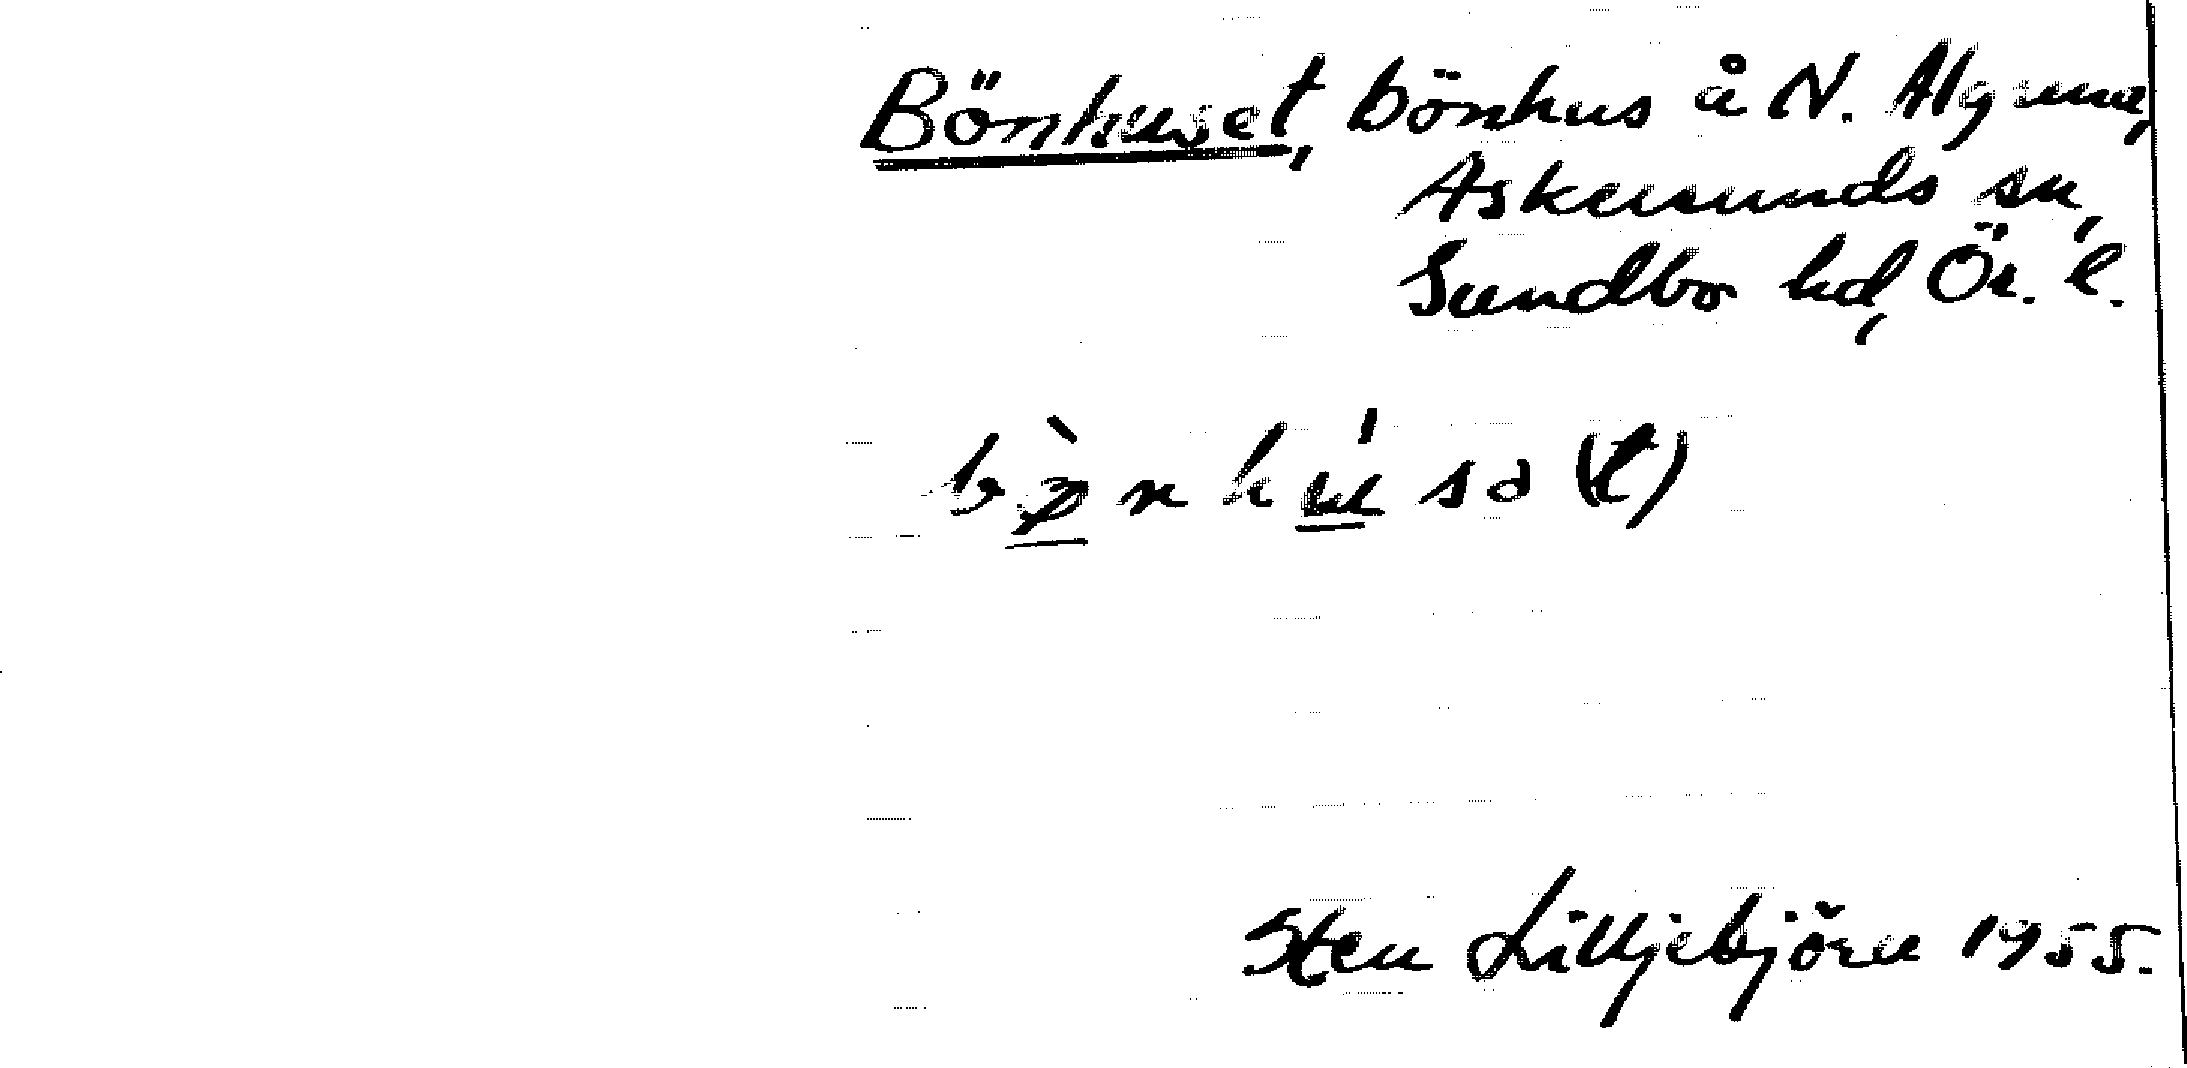 Bönhuset, bönhus å N. Algrena,
Askersunds sn,
Sundbo hd, Ör. l.
bø̀nhúsə(t)
Sten Lilljebjörn 1955.